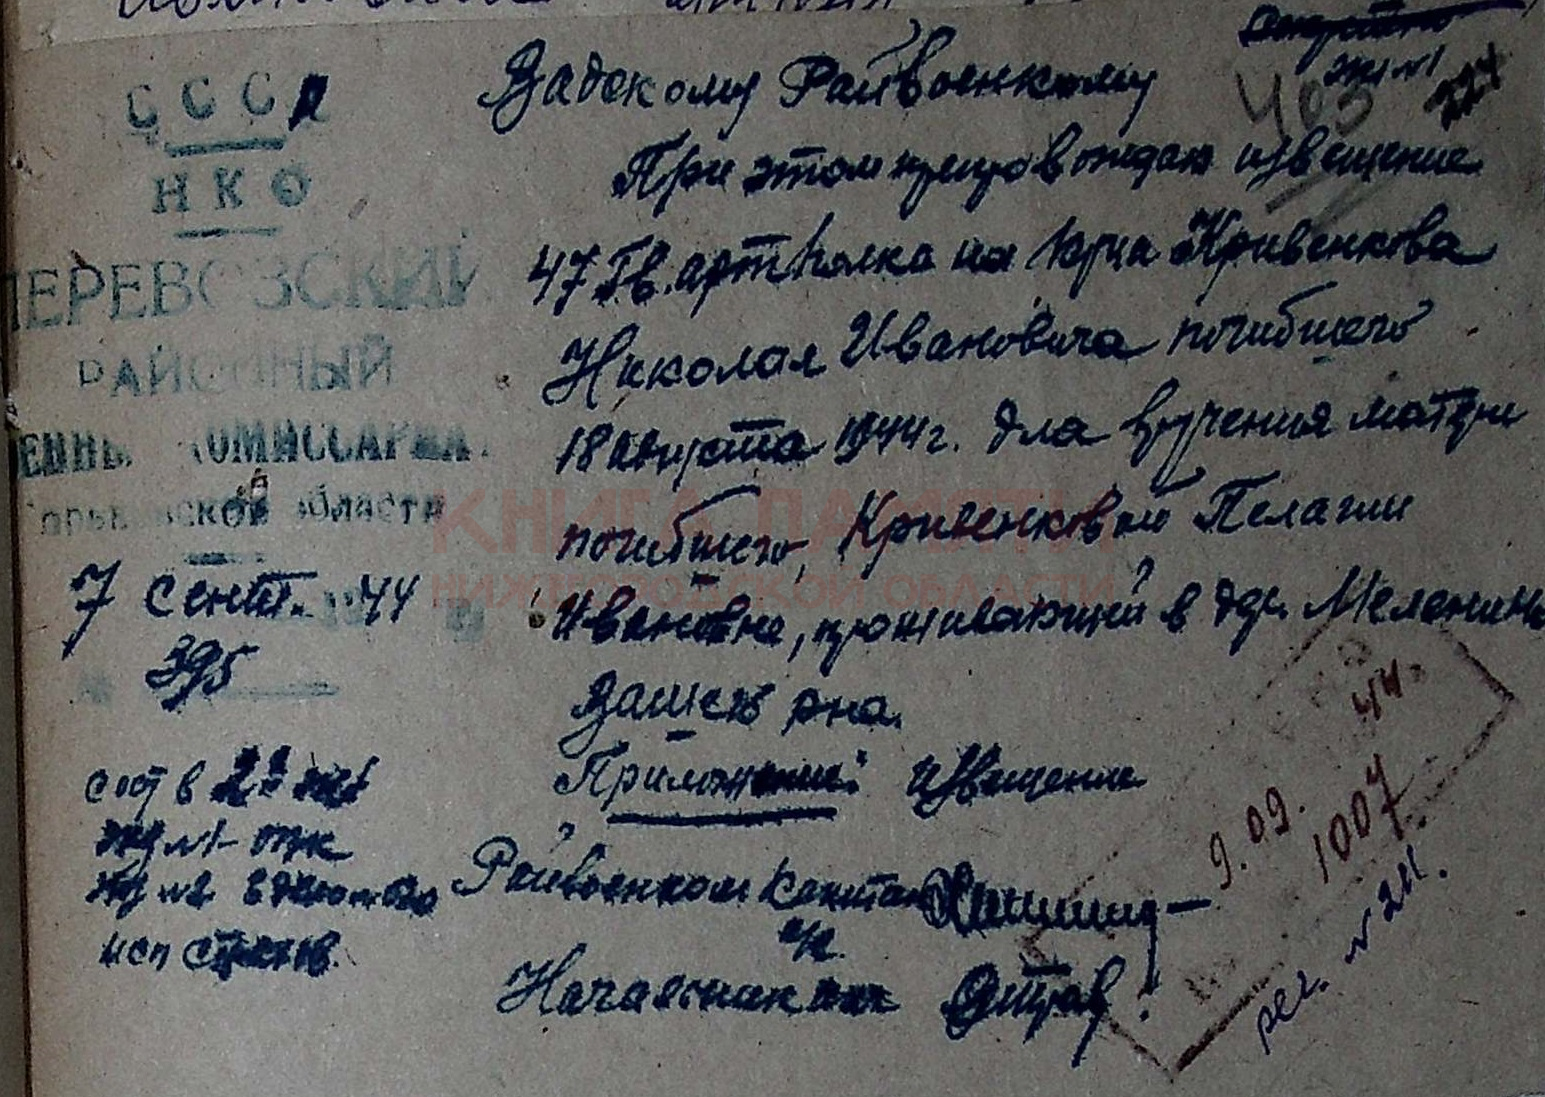 СССР
НКО
ПЕРЕВОЗСКИЙ
РАЙОННЫЙ
ВОЕННЫЙ КОМИССАРИАТ
Горьковской области
7 Сент. 44
395
сост в 2х экз
экз №1 –
экз №2 в дело
исп
экз №1
403
Вадскому Райвоенкому
При этом препровождаю извещение
47 Гв. арт полка на Кр-ца Кривенкова
Николая Ивановича погибшего
18 августа 1944 г. для вручения матери
погибшего, Кривенковой Пелагии
Ивановне, проживающей в дер.
вашего р-на.
Приложение: извещение
Райвоенком Капитан
Начальник
КНИГА ПАМЯТИ
НИЖЕГОРОДСКОЙ ОБЛАСТИ
44.
9.09.
1004
рег. № 211.